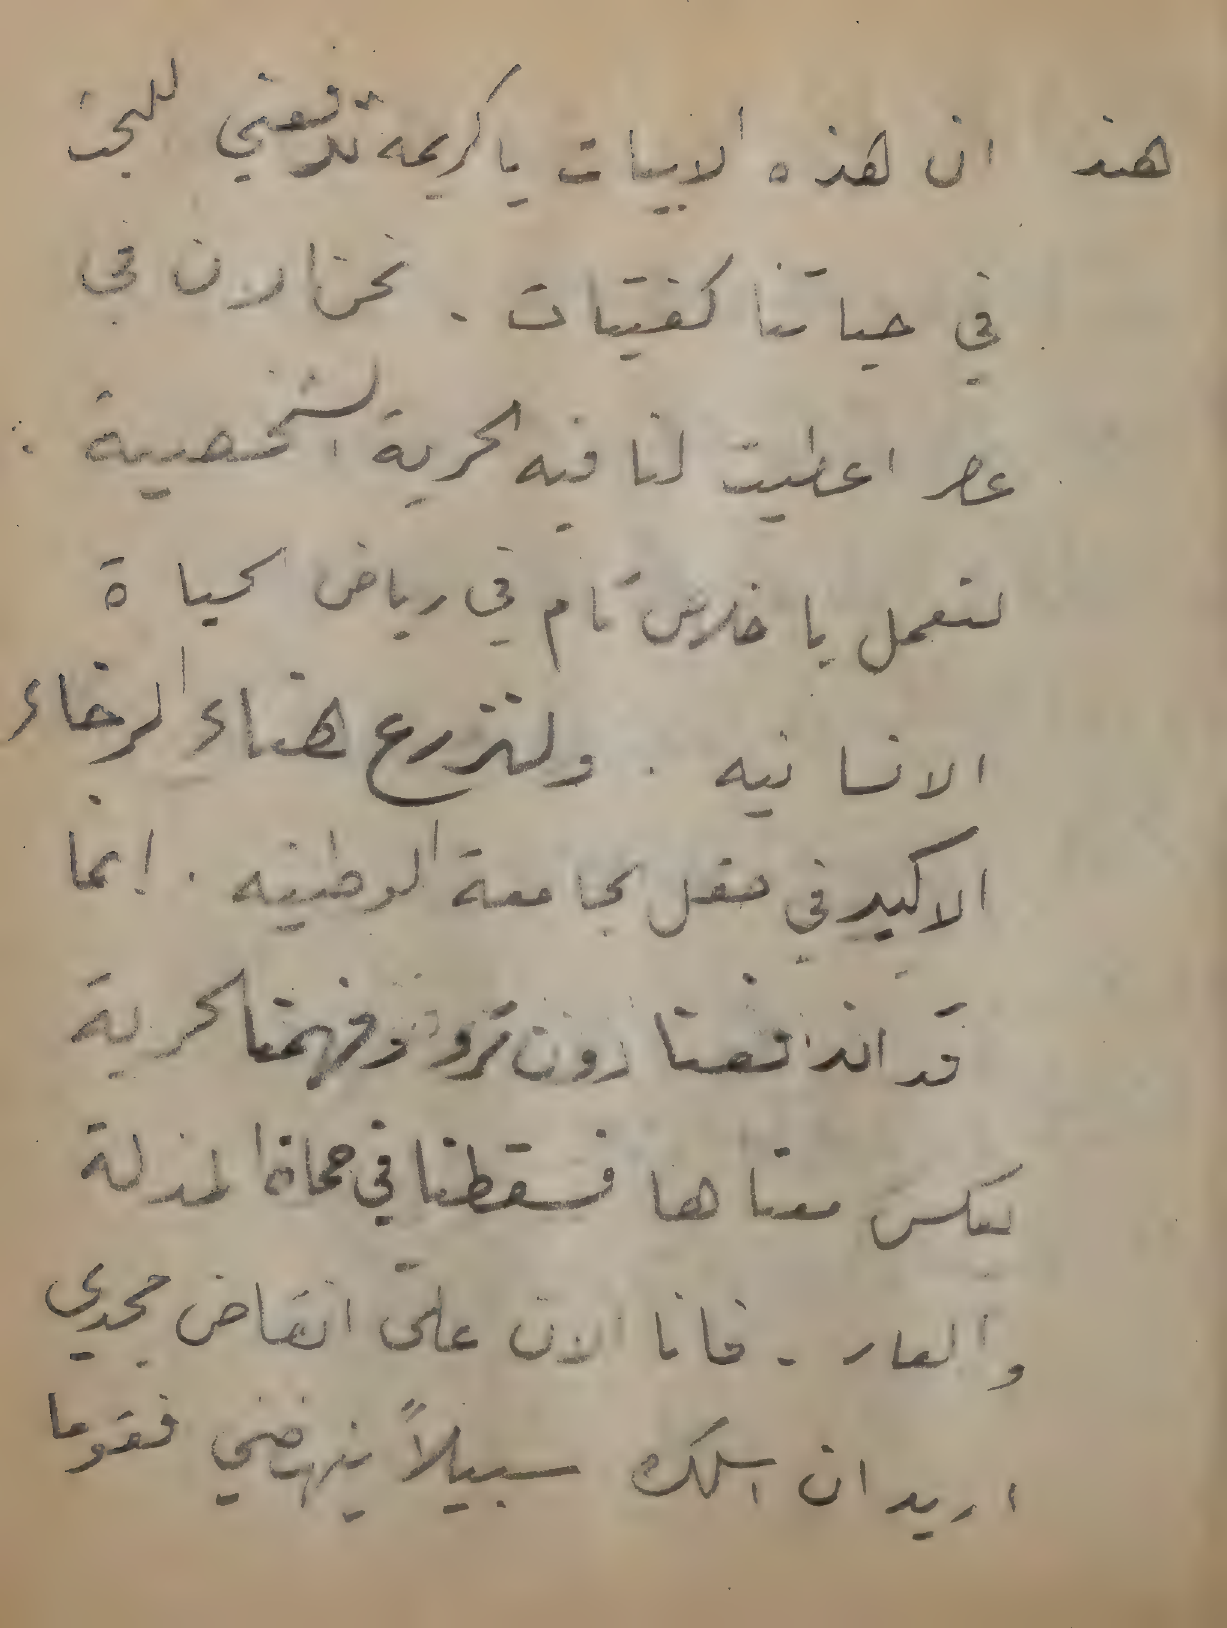 هند ان هذه الابيات يا كريمه تدفعني للبحث
في حياتنا كفتيات . نحن الان في
عصر اعطيت لنا فيه الحرية الشخصية :
لنعمل باخلاص تام في رياض الحياة
الانسانيه . ولنزرع هناء الرخاء
الاكيد في حقل الجامعة الوطنيه . إنما
قد اندفعنا دون تروٍ وفهمنا الحرية
بعكس معناها فسقطنا في حمأة المذلة
والعار . فانا الان على انقاض مجدي
اريد ان اسلك سبيلاً ينهضني فقوما